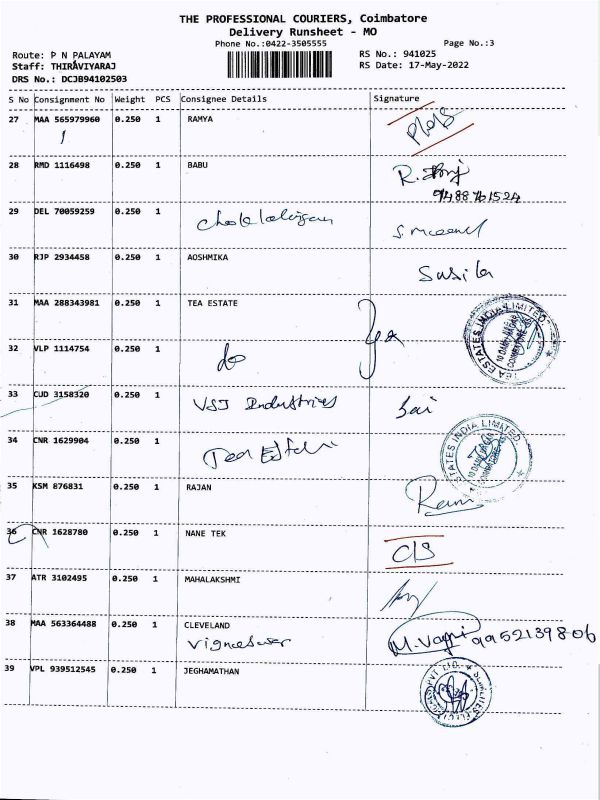 THE PROFESSIONAL COURIERS, Coimbatore
Delivery Runsheet - MO
Phone No.:0422-3505555
Page No.:3
Route: P N PALAYAM
RS No.: 941025
Staff: THIRAVIYARAJ
RS Date: 17-May-2022
DRS No.: DCJB94102503
S No Consignment No Weight PCS Consignee Details Signature
27 MAA 565979960 0.250 1 RAMYA
28 RMD 1116498 0.250 1 BABU
9488761524
29 DEL 70059259 0.250 1
30 RJP 2934458 0.250 1 AOSHMIKA Susila
31 MAA 288343981 0.250 1 TEA ESTATE
TEA ESTATES INDIA LIMITED
32 VLP 1114754 0.250 1 do
33 CUD 3158320 0.250 1 VSJ Industries Sai
34 CNR 1629904 0.250 1 Tea Estate
ESTATES INDIA LIMITED
35 KSM 876831 0.250 1 RAJAN
36 CNR 1628780 0.250 1 NANE TEK C/S
37 ATR 3102495 0.250 1 MAHALAKSHMI
38 MAA 563364488 0.250 1 CLEVELAND
Vigneswar 9952139806
39 VPL 939512545 0.250 1 JEGHAMATHAN